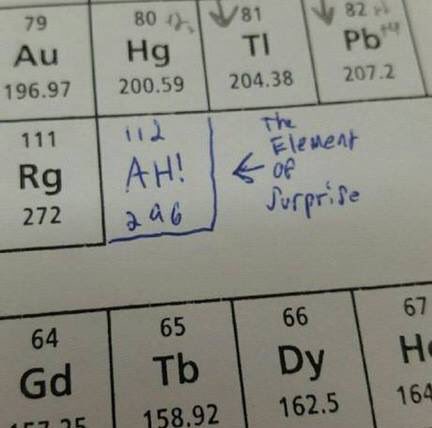 79 80 81 82
Au Hg Tl Pb
196.97 200.59 204.38 207.2
111 112 The
Rg AH! Element
272 296 Of
Surprise
64 65 66 67
Gd Tb Dy
158.92 162.5 164